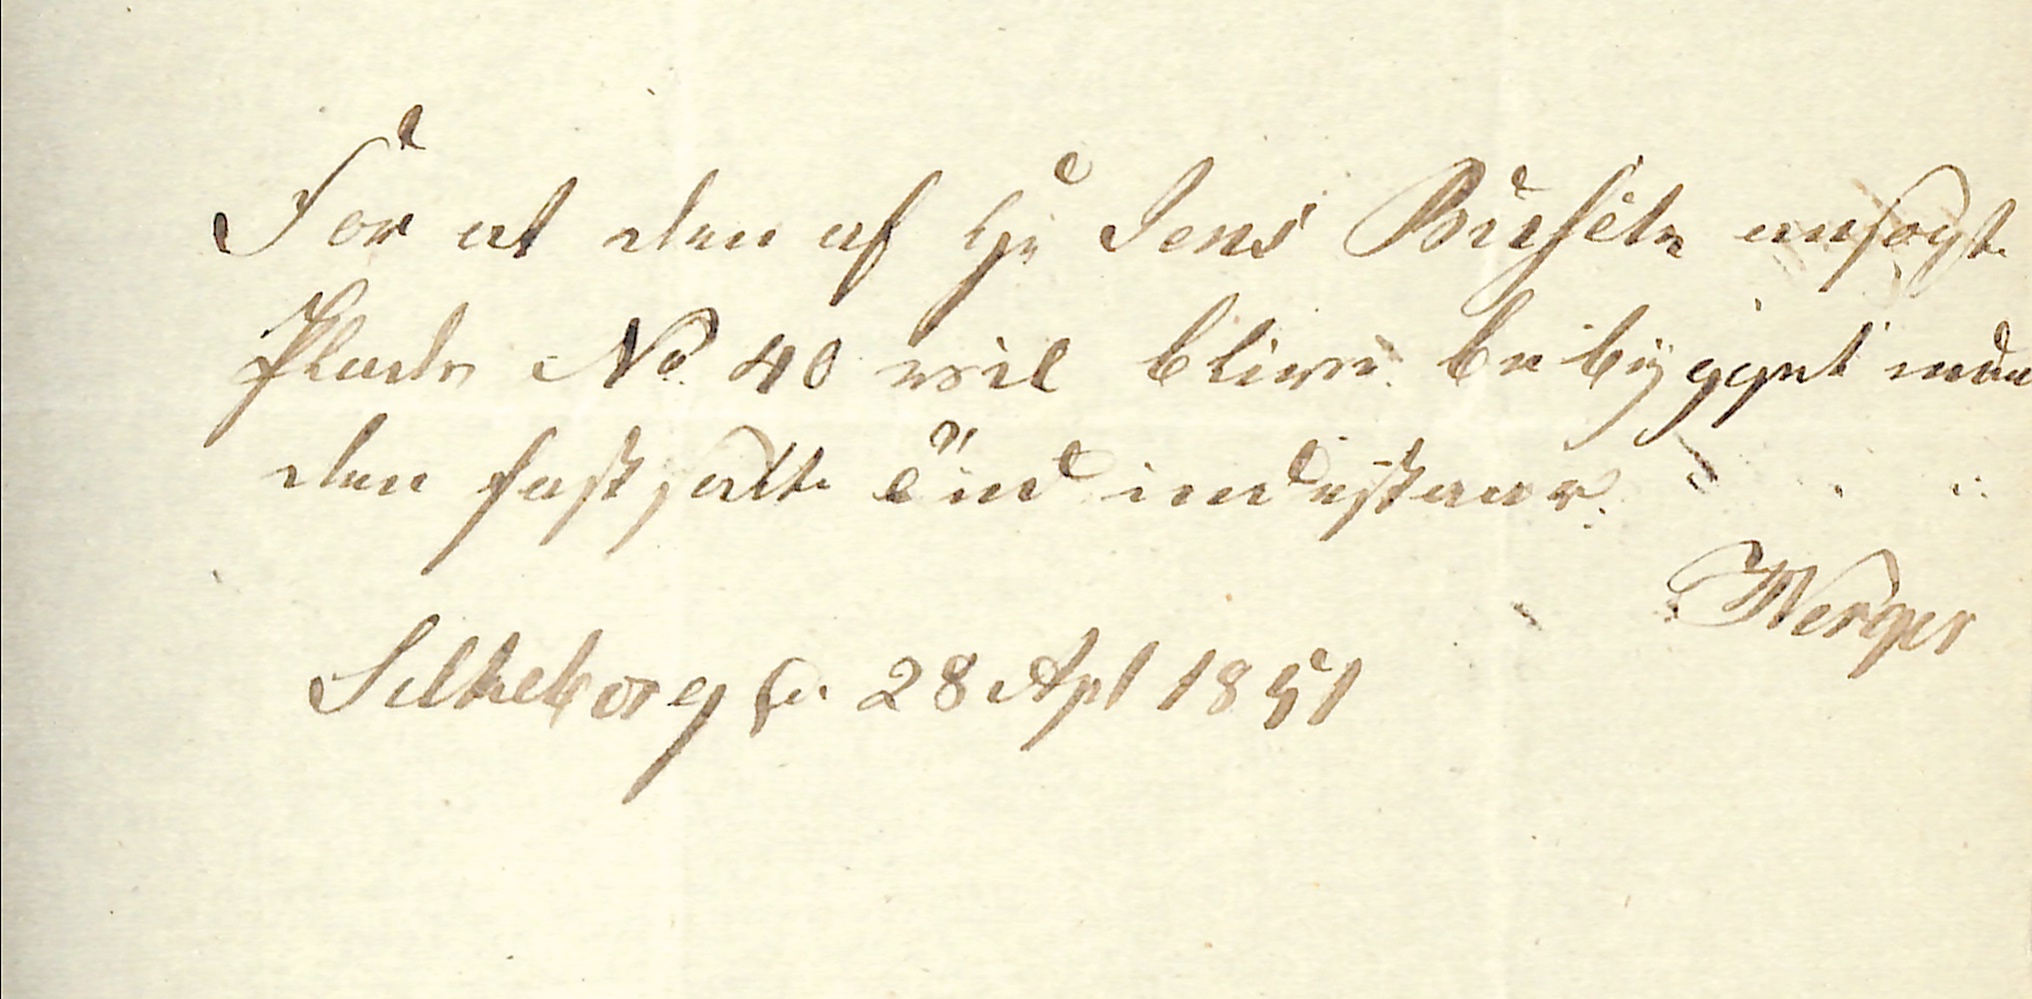 For at den af Hr Jens Buseke ansøgte
Plads No. 40 vil blive bebygget inden
den fastsatte Tid indestaaer
Werger
Silkeborg d. 28 Apl 1851